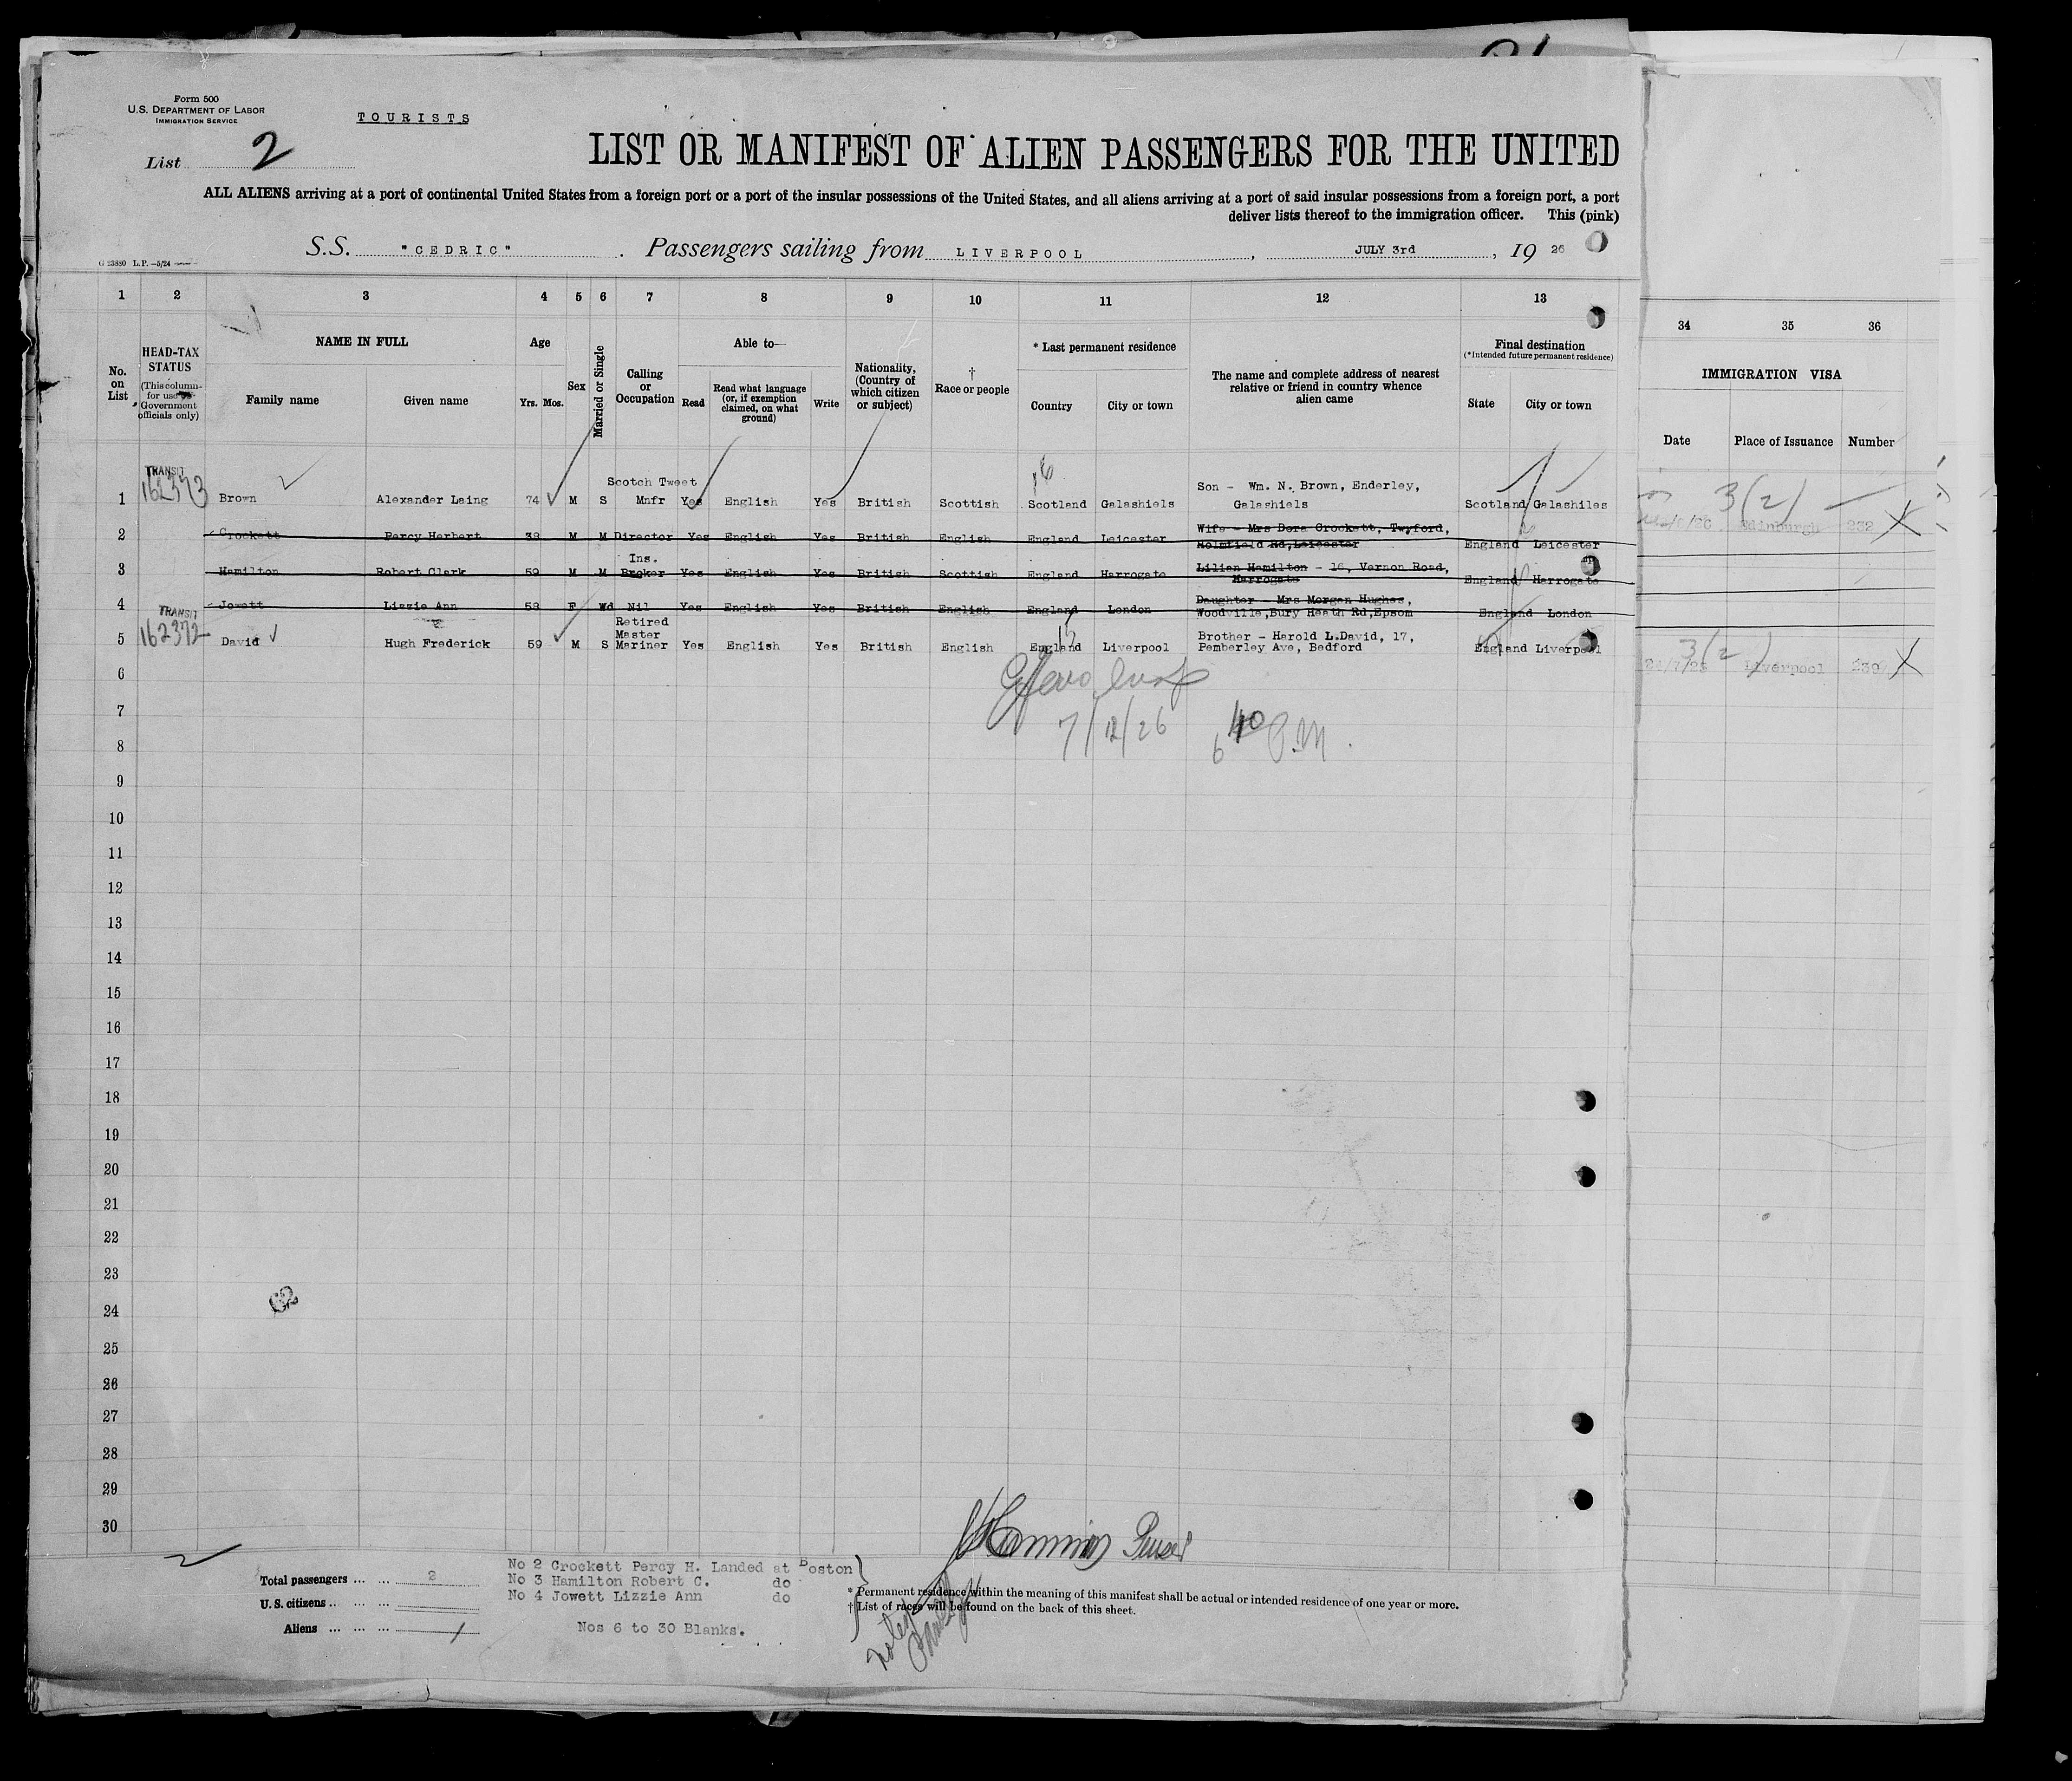 Form 500
U.S. DEPARTMENT OF LABOR
IMMIGRATION SERVICE
TOURISTS
List 2
LIST OR MANIFEST OF ALIEN PASSENGERS FOR THE UNITED
ALL ALIENS arriving at a port of continental United States from a foreign port or a port of the insular possessions of the United States, and all aliens arriving at a port of said insular possessions from a foreign port, a port
deliver lists thereof to the immigration officer. This (pink)
S.S. "CEDRIC". Passengers sailing from LIVERPOOL, JULY 3rd, 19 26
1 2 3 4 5 6 7 8 9 10 11 12 13 34 35 36
No. on List
HEAD-TAX STATUS
(This column for use of Government officials only)
NAME IN FULL
Family name
Given name
Age
Yrs. Mos.
Sex
Married or Single
Calling or Occupation
Able to—
Read
Read what language (or, if exemption claimed, on what ground)
Write
Nationality, (Country of which citizen or subject)
† Race or people
* Last permanent residence
Country
City or town
The name and complete address of nearest relative or friend in country whence alien came
Final destination
(*Intended future permanent residence)
State
City or town
IMMIGRATION VISA
Date
Place of Issuance
Number
TRANSIT
162373
1 Brown Alexander Laing 74 M S Scotch Tweet Mnfr Yes English Yes British Scottish Scotland Galashiels Son - Wm. N. Brown, Enderley, Galashiels Scotland Galashiles Edinburgh 232
3(2)
2 Crockett Percy Herbert 38 M M Director Yes English Yes British English England Leicester Wife - Mrs Dora Crockett, Twyford, Holmfield Rd,Leicester England Leicester
3 Hamilton Robert Clark 59 M M Ins. Broker Yes English Yes British Scottish England Harrogate Lilian Hamilton - 16, Vernon Road, Harrogate England Harrogate
4 Jowett Lizzie Ann 58 F Wd Nil Yes English Yes British English England London Daughter - Mrs Morgan Hughes, Woodville,Bury Heath Rd,Epsom England London
TRANSIT
162372
5 David Hugh Frederick 59 M S Retired Master Mariner Yes English Yes British English England Liverpool Brother - Harold L.David, 17, Pemberley Ave, Bedford England Liverpool Liverpool 239
3(2)
6
7
7/12/26 6 40 P.M.
8
9
10
11
12
13
14
15
16
17
18
19
20
21
22
23
24
25
26
27
28
29
30
Purser
Total passengers ... ... 2
U.S. citizens ... ... ...
Aliens ... ... ...
No 2 Crockett Percy H. Landed at Boston
No 3 Hamilton Robert C. do
No 4 Jowett Lizzie Ann do
Nos 6 to 30 Blanks.
* Permanent residence within the meaning of this manifest shall be actual or intended residence of one year or more.
† List of races will be found on the back of this sheet.